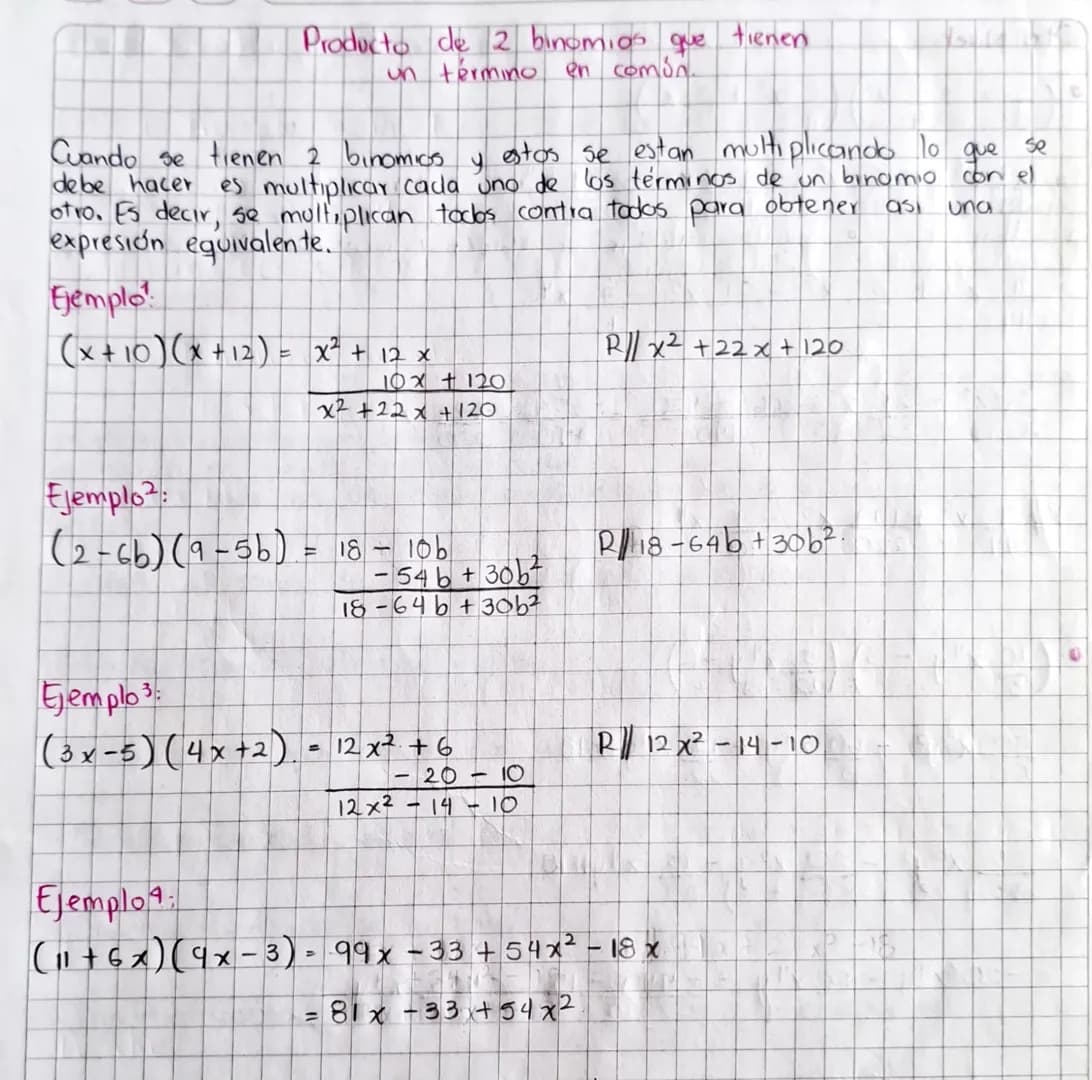 Producto de 2 binomios que tienen
un término en común.
Cuando se tienen 2 binomios y estos se estan multiplicando lo que se
debe hacer es multiplicar cada uno de los términos de un binomio con el
otro. Es decir, se multiplican todos contra todos para obtener asi una
expresión equivalente.
Ejemplo¹:
(x+10)(x+12) = x² + 12 x R// x² +22x + 120
10x + 120
x² +22 x + 120
Ejemplo²:
(2-6b)(9-5b). = 18 - 10b R// 18 -64b +30b².
- 54b + 30b²
18 -64b + 30b²
Ejemplo³:
(3x-5)(4x+2). = 12x² + 6 R// 12x² -14-10
- 20 - 10
12x² - 14 - 10
Ejemplo⁴:
(11+6x)(9x-3) = 99x -33 + 54x² - 18x
= 81x -33 + 54x²